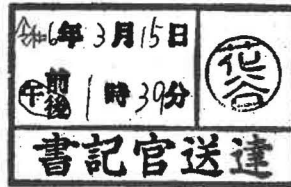 令和6年3月15日
午前後1時39分
花谷
書記官送達